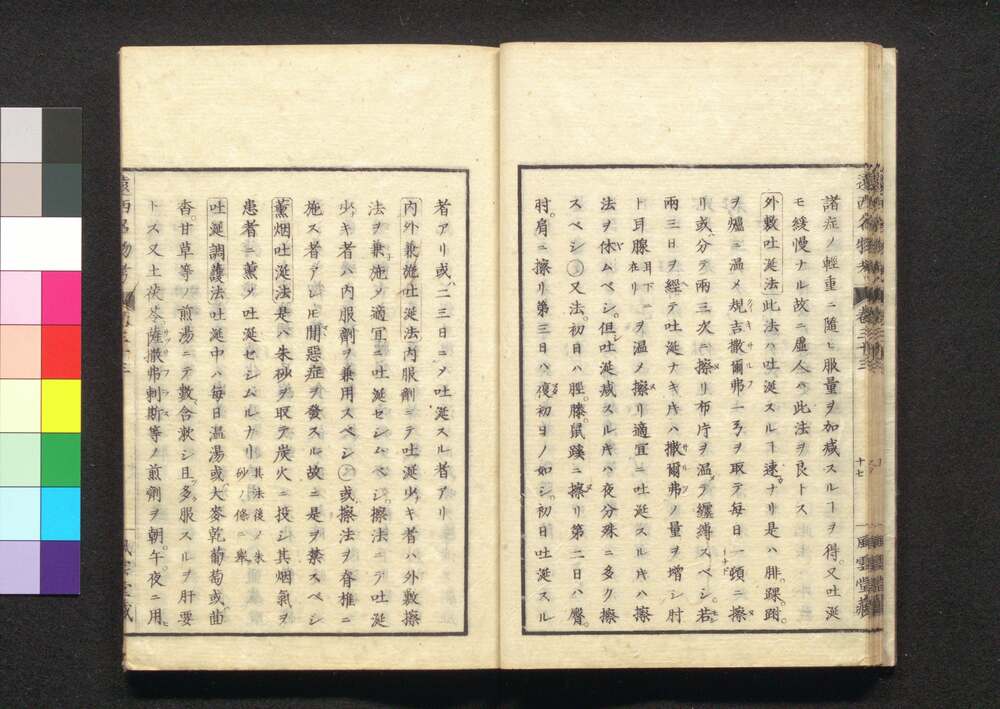 諸症ノ輕重ニ隨ヒ服量ヲ加減スルヿヲ得又吐涎
モ緩慢ナル故ニ虛人ハ此法ヲ良トス
外敷吐涎法此法ハ吐涎スルヿ速ナリ是ハ腓踝跗
ヲ爐ニ温メ䂓吉撒爾弗一弓ヲ取テ每日一頭ニ擦
リ或分テ兩三次ニ擦リ布片ヲ温テ纏縛スベシ若
兩三日ヲ經テ吐涎ナキ片ハ撒爾弗ノ量ヲ增シ肘
ト耳腺耳下ニ在リヲ温メ擦リ適宜ニ吐涎スル片ハ擦
法ヲ休ムベシ但吐涎減スル片ハ夜分殊ニ多ク擦
スベシ○又法初日ハ脛膝鼠蹊ニ擦リ第二日ハ臀
肘肩ニ擦リ第三日ハ復初日ノ如シ初日吐涎スル
者アリ或二三日ニメ吐涎スル者アリ
內外兼施吐涎法內服劑ニテ吐涎少キ者ハ外敷擦
法ヲ兼施メ適宜ニ吐涎セシムベシ擦法ニテ吐涎
少キ者ハ內服劑ヲ兼用スベシ○或擦法ヲ脊椎ニ
施ス者アレ𪜈間惡症ヲ發スル故ニ是ヲ禁スベシ
薰烟吐涎法是ハ朱砂ヲ取テ炭火ニ投シ其烟氣ヲ
患者ニ薰メ吐涎セシムルナリ其法後ノ朱砂ノ條ニ擧
吐涎調護法吐涎中ハ每日温湯或大麥乾葡萄或茴
香甘草等ノ煎湯ニテ數含漱シ且多服スルヲ肝要
トス又土茯苓薩撒弗剌斯等ノ煎劑ヲ朝午夜ニ用
十七
風雲堂藏